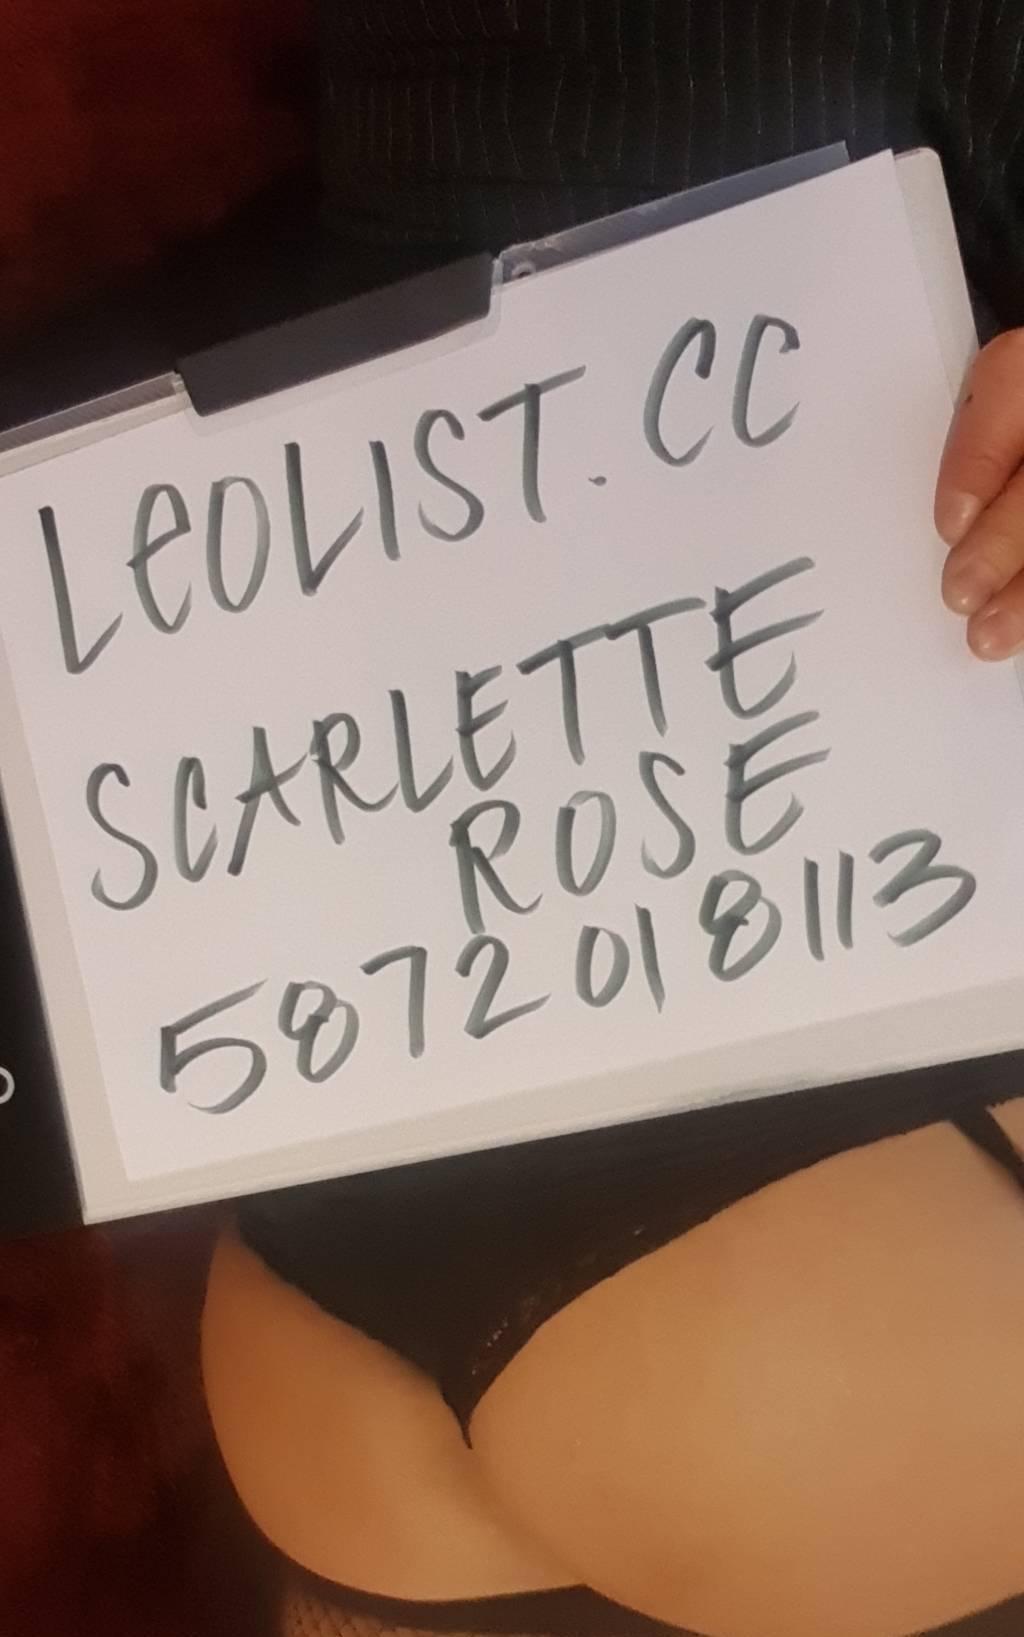 LEOLIST.CC
SCARLETTE
ROSE
5872018113